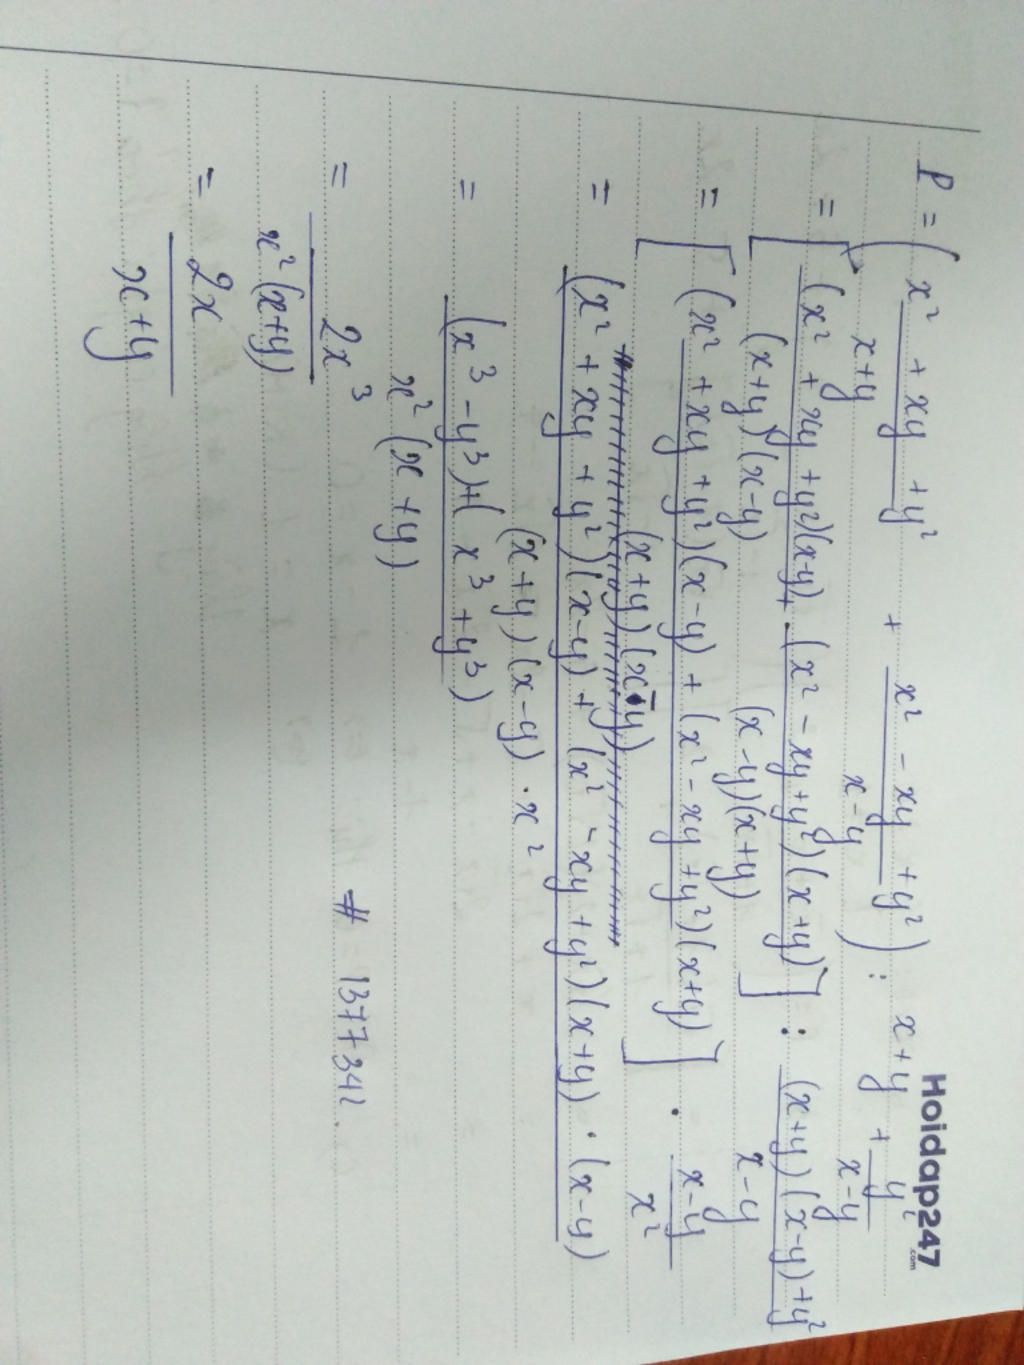 Hoidap247
.com
P = ( x² + xy + y² / x+y + x² - xy + y² / x-y ) : x+y + y² / x-y
= [ (x² + xy + y²)(x-y) / (x+y)(x-y) + (x² - xy + y²)(x+y) / (x-y)(x+y) ] : (x+y)(x-y)+y² / x-y
= [ (x² + xy + y²)(x-y) + (x² - xy + y²)(x+y) / (x+y)(x-y) ] . x-y / x²
= (x² + xy + y²)(x-y) + (x² - xy + y²)(x+y) . (x-y) / (x+y)(x-y) . x²
= (x³ - y³) + (x³ + y³) / x²(x+y)
= 2x³ / x²(x+y)
# 1377342.
= 2x / x+y